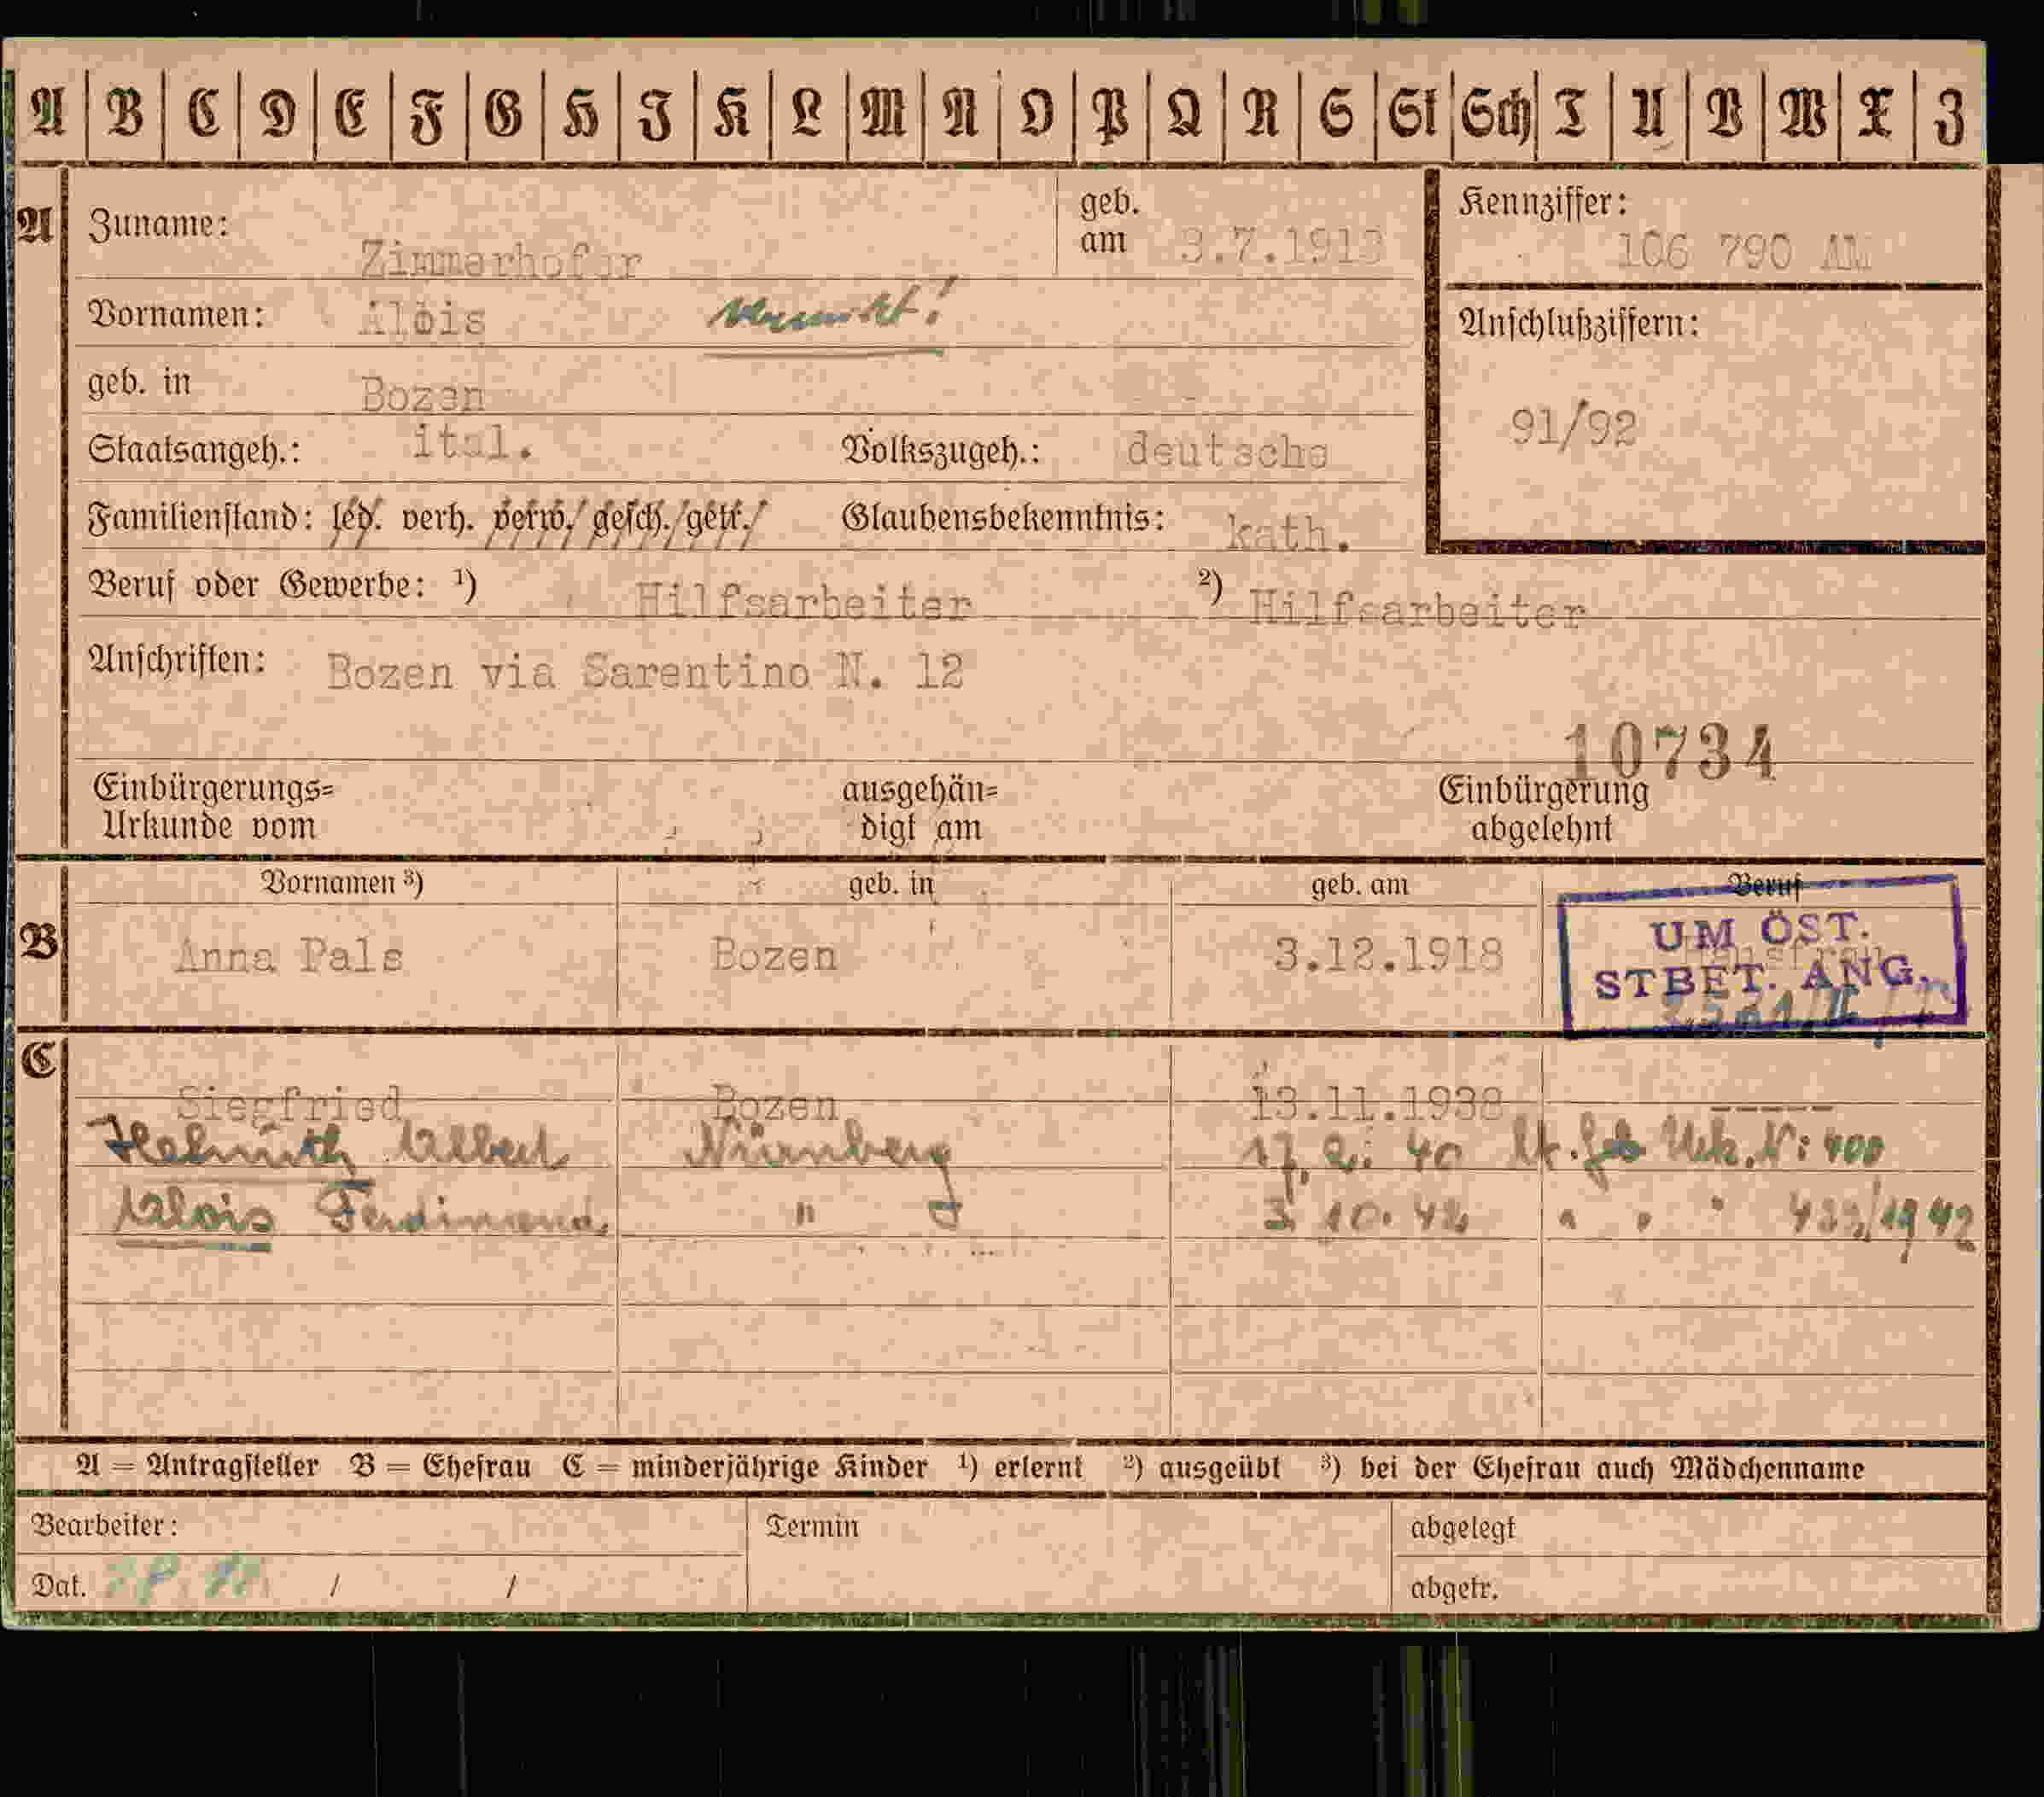 A B C D E F G H I K L M N O P Q R S St Sch T U V W X Z
A Zuname: Zimmerhofer geb. am 3.7.1913 Kennziffer: 106 790 AN
Vornamen: Alois Vermißt! Anschlußziffern:
geb. in Bozen
91/92
Staatsangeh.: ital. Volkszugeh.: deutsche
Familienstand: led. verh. verw. gesch. getr. Glaubensbekenntnis: kath.
Beruf oder Gewerbe: ¹) Hilfsarbeiter ²) Hilfsarbeiter
Anschriften: Bozen via Sarentino N. 12
10734
Einbürgerungs= ausgehän= Einbürgerung
Urkunde vom digt am abgelehnt
Vornamen ³) geb. in geb. am Beruf
B Anna Pals Bozen 3.12.1918
UM ÖST.
STBET. ANG.
C
Siegfried Bozen 13.11.1938 ------
Helmuth Albert Nürnberg 17. 2. 40 lt. Geb Urk. N: 400
Alois Ferdinand " 3 10. 42 " " " 433/1942
A = Antragsteller B = Ehefrau C = minderjährige Kinder ¹) erlernt ²) ausgeübt ³) bei der Ehefrau auch Mädchenname
Bearbeiter: Termin abgelegt
Dat. / / abgetr.